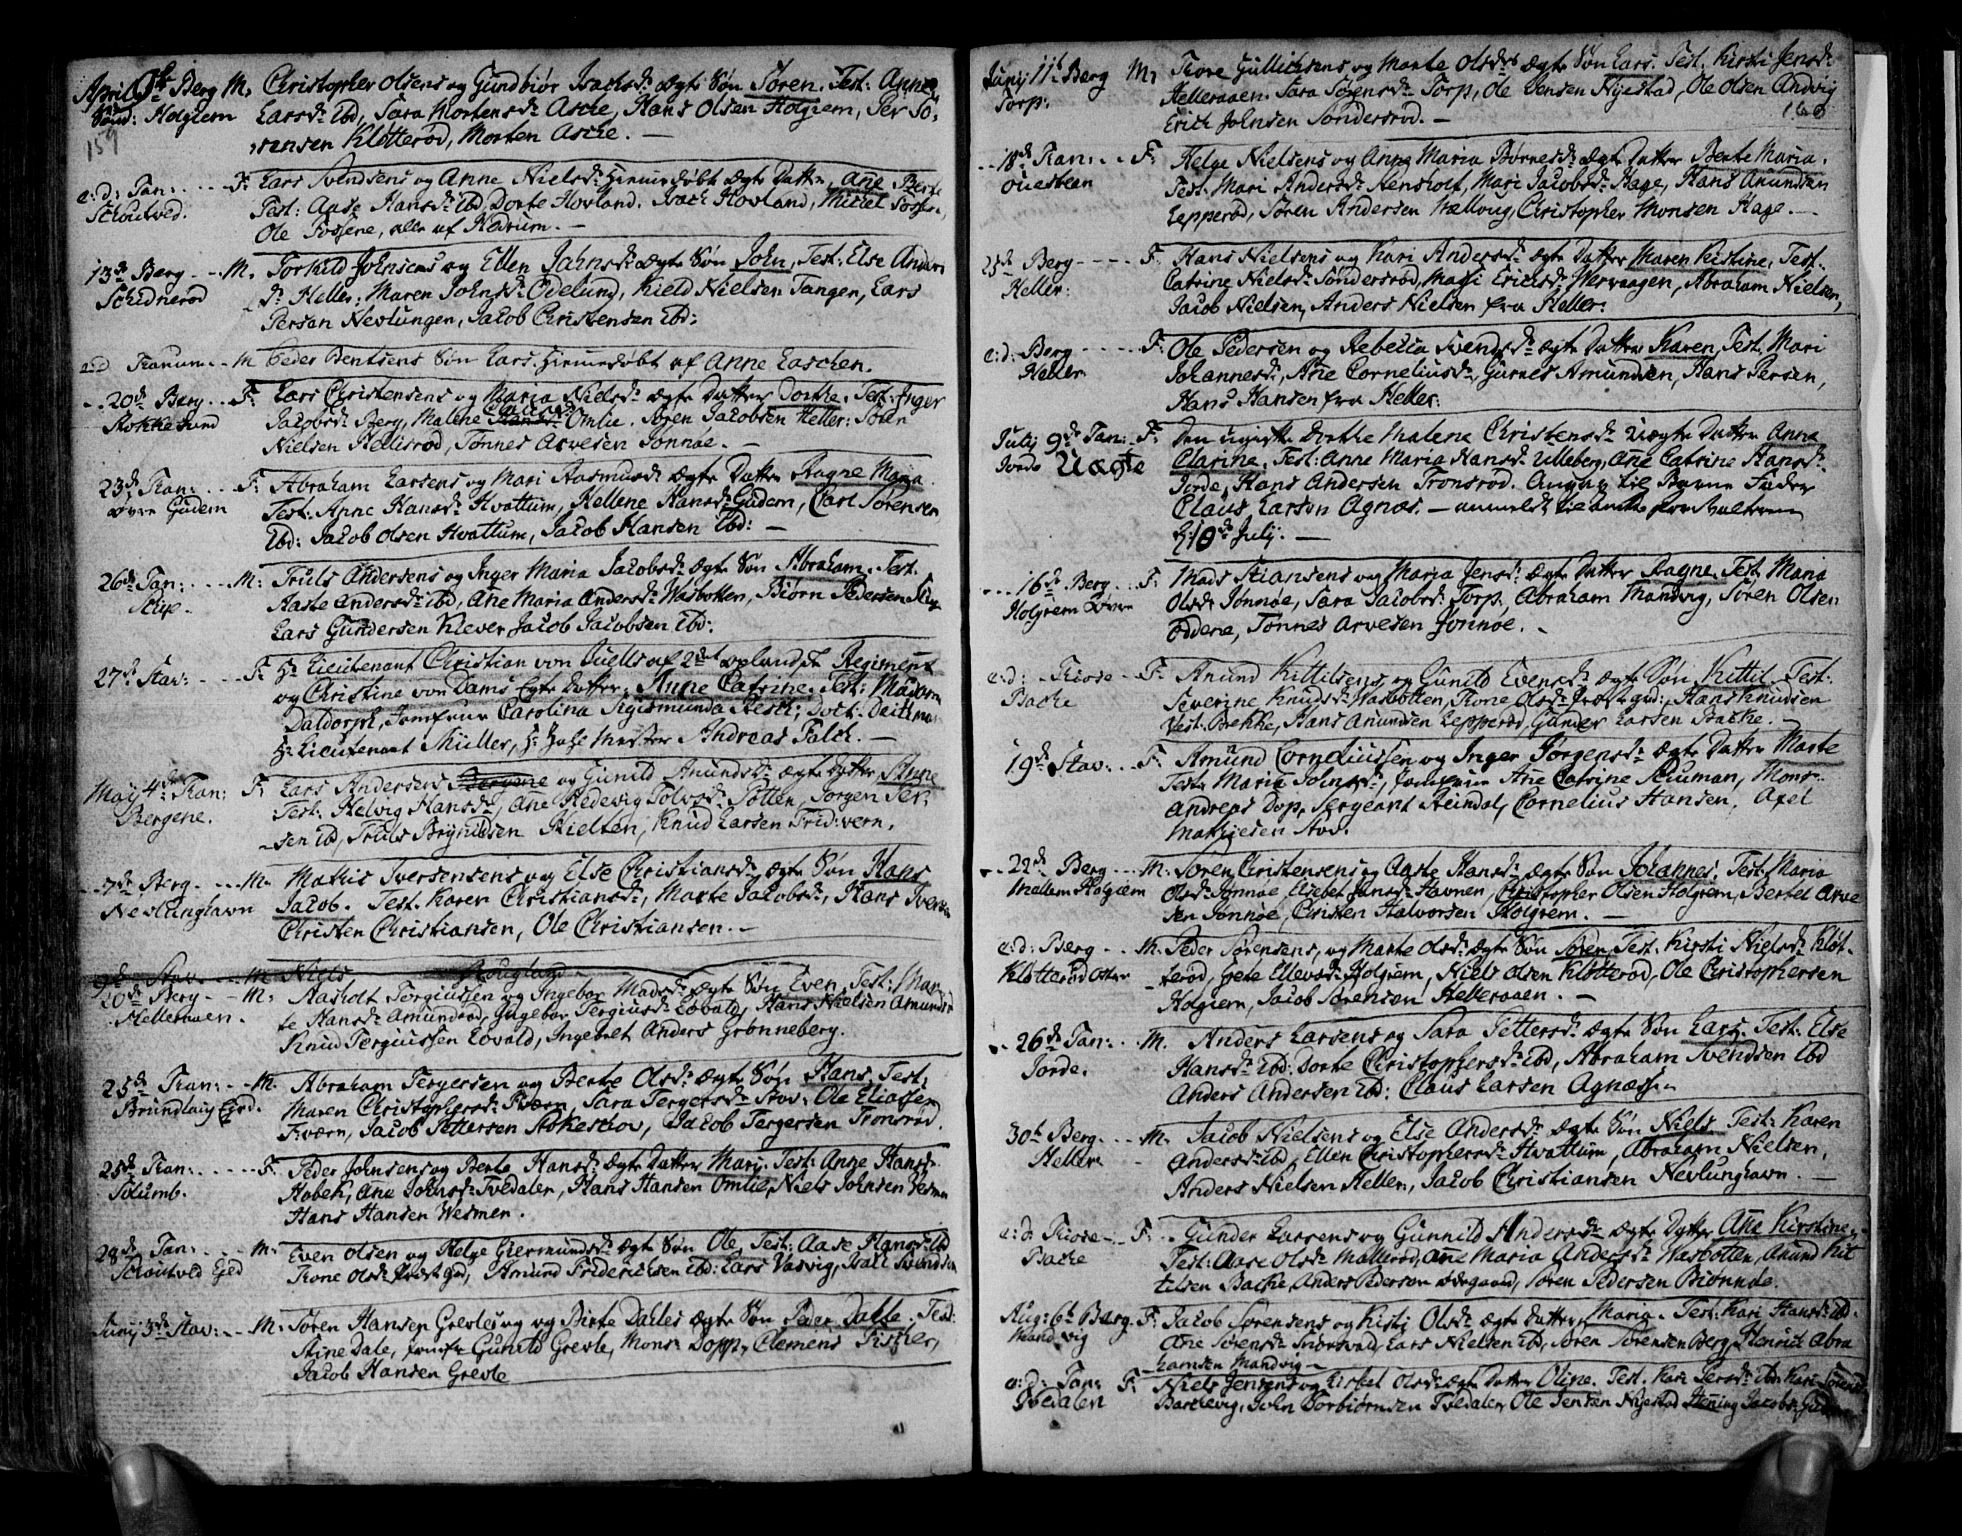 April 9de Berg M. Christopher Olsens og Gundbiør Isachsdr ægte Søn Søren. Test: Anne
Sønd: Holgrem Larsdr ibd, Sara Mortensdr Aske, Hans Olsen Holgrem, Per Sø-
159 rensen Kløtterød, Morten Aske. —
e:d: Tan: F: Lars Svendsens og Anne Nielsdr hiemmedøbt ægte Datter, Ane Berte
Skoutved. Test: Aase Hansdr ibd, Dorte Hovland. Isach Hovland, Mickel
Ole Fossene, alle af Hedrum. —
13de Berg M. Torkild Johnsens og Ellen Jahnsdr ægte Søn John, Test: Else Anders
Schinnerød dr Heller, Maren Johnsdr Ødelund, Kield Nielsen Tangen, Lars
Persen Nevlungen, Jacob Christensen ibd:
e:d Tranum M Peder Bentsens Søn Lars. hiemmedøbt af Anne Laschen.
20de Berg F: Lars Christensens og Maria Nielsdr ægte Datter Dorthe. Test: Inger
Rokkesund Jacobsdr Berg, Malene Clausd Omlie, Søren Jacobsen Heller, Søren
Nielsen Hellisrød, Tønnes Arvesen Jonnøe. —
23de Tan: F: Abraham Larsens og Mari Rasmusdr ægte Datter Ragne Maria.
øvre Gudem Test: Anne Hansdr Hvattum, Hellene Hansdr Gudem, Carl Sørensen
ibd: Jacob Olsen Hvattum, Jacob Hansen ibd: —
26de Tan: M: Truls Andersens og Inger Maria Jacobsdr ægte Søn Abraham. Test.
Aaste Andersdr ibd, Ane Maria Andersdr Wasbotten, Biørn Pedersen
Lars Gundersen Klever Jacob Jacobsen ibd:
27de Stav: F: Hr Lieutenant Christian von Quells af 2det oplandske Regiment
og Christine von Dams Egte Datter: Anne Catrine. Test: Madam
Daldorph, Jomfrue Carolina Sigismunda Resch; Doct: Deichman
Hr Lieutenant Müller, Hr Andreas Falck. —
May 4de Tan: F: Lars Andersens Bergene og Gunild Amundsdr ægte Datter Anne
Bergene. Test: Helvig Hansdr, Ane Hedevig Tolvsdr Sotten, Jørgen Per-
sen ibd, Truls Brynildsen Nielten, Knud Larsen Fridvern.
7de Berg M. Mathis Iversensens og Else Christiansdr ægte Søn Hans
Nevlunghavn Jacob. Test. Karen Christiansdr, Marte Jacobsdr, Hans Iversen
Christen Christiansen, Ole Christiansen. —
9de Stav M Niels Rougland
20de Berg M: Aasholt Tergiussen og Ingebor Madsdr ægte Søn Even, Test: Mar-
Helleraaen. te Hansdr Amundrød, Ingebor Tergiusdr Lovald, Hans Nielsen Amundrød
Knud Tergiussen Lovald, Ingebret Anders Grønneberg.
25de Tan: M. Abraham Tergersen og Berte Olsdr ægte Søn Hans, Test:
Brundlaug Eied. Maren Christophersdr Kværn, Sara Tergersdr Stov: Ole Eliassen
Kværn, Jacob Pettersen Askeskov, Jacob Tergersen Tronsrød.
25de Tan: F. Peder Johnsens og Berte Hansdr ægte Datter Mari. Test: Anne Hansdr
Solumb. Hobek, Ane Johnsdr Tvedalen, Hans Hansen Omlie, Niels Johnsen Vesmen
Hans Hansen Wesmen.
28de Tan: M: Even Olsen og Helge Giermundsdr ægte Søn Ole. Test: Aase Hansdr ibd
Skoutved Eied Tone Olsdr, Amund Friderichsen ibd: Lars Vasvig, Isach Svendsen
Junij 3de Stav: M: Søren Hansen Grevles og Birte Dahles ægte Søn Peder Dahle. Test:
Stine Dale, Jomfr Gunild Grevle, Mons: Dopp, Clemens Fischer,
Jacob Hansen Grevle
Junij 11te Berg M, Tore Gullichsens og Marte Olsdrs ægte Søn Lars. Test. Kirsti Jensdr
Torp. Helleraaen. Sara Sørensdr Torp, Ole Jensen Nyestad, Ole Olsen Andvig
160
Erich Johnsen Sønderrød. —
18de Tan: F: Helge Nielsens og Anne Maria Børresdr ægte Datter Berte Maria.
Ouesteen Test: Mari Andersdr Stensholt, Mari Jacobsdr Hage, Hans Amundsen
Lepperød, Søren Andersen Halloug, Christopher Monsen Hage. —
25de Berg F: Hans Nielsens og Kari Andersdr ægte Datter Maren Kistine. Test.
Heller: Catrine Nielsdr Sønderrød, Mari Ericsdr Wervaagen, Abraham Nielsen,
Jacob Nielsen, Anders Nielsen fra Heller:
e:d: Berg F: Ole Pedersen og Rebecca Svendsdr ægte Datter Karen, Test. Mari
Heller Johannesdr, Ane Corneliusdr, Gunnes Amundsen, Hans Persen,
Hans Hansen fra Heller.
July 9de Tan: F: Den ugifte Dorthe Malena Christensdr uægte Datter Anna
Jorde Uægte Clarine. Test: Anne Maria Hansdr Ulleberg, Ane Catrine Hansdr
Jorde, Hans Andersen Tronsrød. Angav til Barne Fader
Claus Larsen Agnæs. — anmeldt
d: 10de Julij. —
16de Berg F: Mads Stiansens og Maria Jensdr ægte Datter Ragne. Test Maria
Holgrem Øvre Olsdr Jonnøe, Sara Jacobsdr Torp, Abraham Mandvig, Søren Olsen
Oddene, Tønnes Arvesen Jonnøe. —
e:d: Kiose F: Amund Kittilsens og Gunild Evensdr ægte Søn Kittil. Test:
Backe Severine Knudsdr Wasbotten, Tone Olsdr, Hans Knudsen
Vest. Bekke, Hans Amundsen Lepperød, Gunder Larsen Backe. —
19de Stav: F: Amund Corneliussen og Inger Jørgensdr ægte Datter Marte
Test: Maria Johnsdr, Jomfrue Ane Catrine Schuman, Mons:
Andreas Dop, Sergeant Reindal, Cornelius Hansen, Axel
Mathiesen Stov.
22de Berg M: Søren Christensens og Aaste Hansdr ægte Søn Johannes. Test: Maria
Mellem Holgrem Olsdr Jonnøe, Elsebet Jensdr Havnen, Christopher Olsen Holgrem, Bertel Arve-
sen Jonnøe, Christen Halvorsen Holgrem. —
e:d: Berg M. Peder Sørensens, og Marte Olsdr ægte Søn Søren. Test. Kirsti Nielsdr Kløt-
Kløtterød Østre terød, Giete Ellevsdr Holgrem, Niels Olsen Kløtterød, Ole Christophersen
Holgrem, Jacob Sørensen Helleraaen. —
26de Tan: M. Anders Larsens og Sara Pettersdr ægte Søn Lars. Test: Else
Jorde. Hansdr ibd: Dorte Christophersdr ibd, Abraham Svendsen ibd
Anders Andersen ibd: Claus Larsen Agnæs. —
30te Berg. M. Jacob Nielsens og Else Andersdr ægte Søn Niels Test: Karen
Heller Andersdr ibd, Ellen Christophersdr Hvattum, Abraham Nielsen,
Anders Nielsen Heller, Jacob Christiansen Nevlunghavn. —
e:d. Kiose F: Gunder Larsens og Gunnild Andersdr ægte Datter Ane Kirstine.
Backe Test: Aase Olsdr Mallerød, Ane Maria Andersdr Wasbotten, Amund Kit-
tilsen Backe, Anders Pedersen, Søren Pedersen Biønnøe.
Aug: 6te Berg F: Jacob Sørensens og Kisti Olsdr ægte Datter Maria. Test: Kari Hansdr ibd.
Mandvig Ane Sørensdr, Lars Nielsen ibd, Søren Sørensen Berg, Henrich Abra-
hamsen Mandvig —
e:d: Tan: F: Niels Jensens og Lisbet Olsdr ægte Datter Oline. Test. Kari Persdr ibd Kari
Tvedalen Barchevig, John Torbiørnsen Tvedalen, Ole Jensen Nyestad Hening Jacobs: